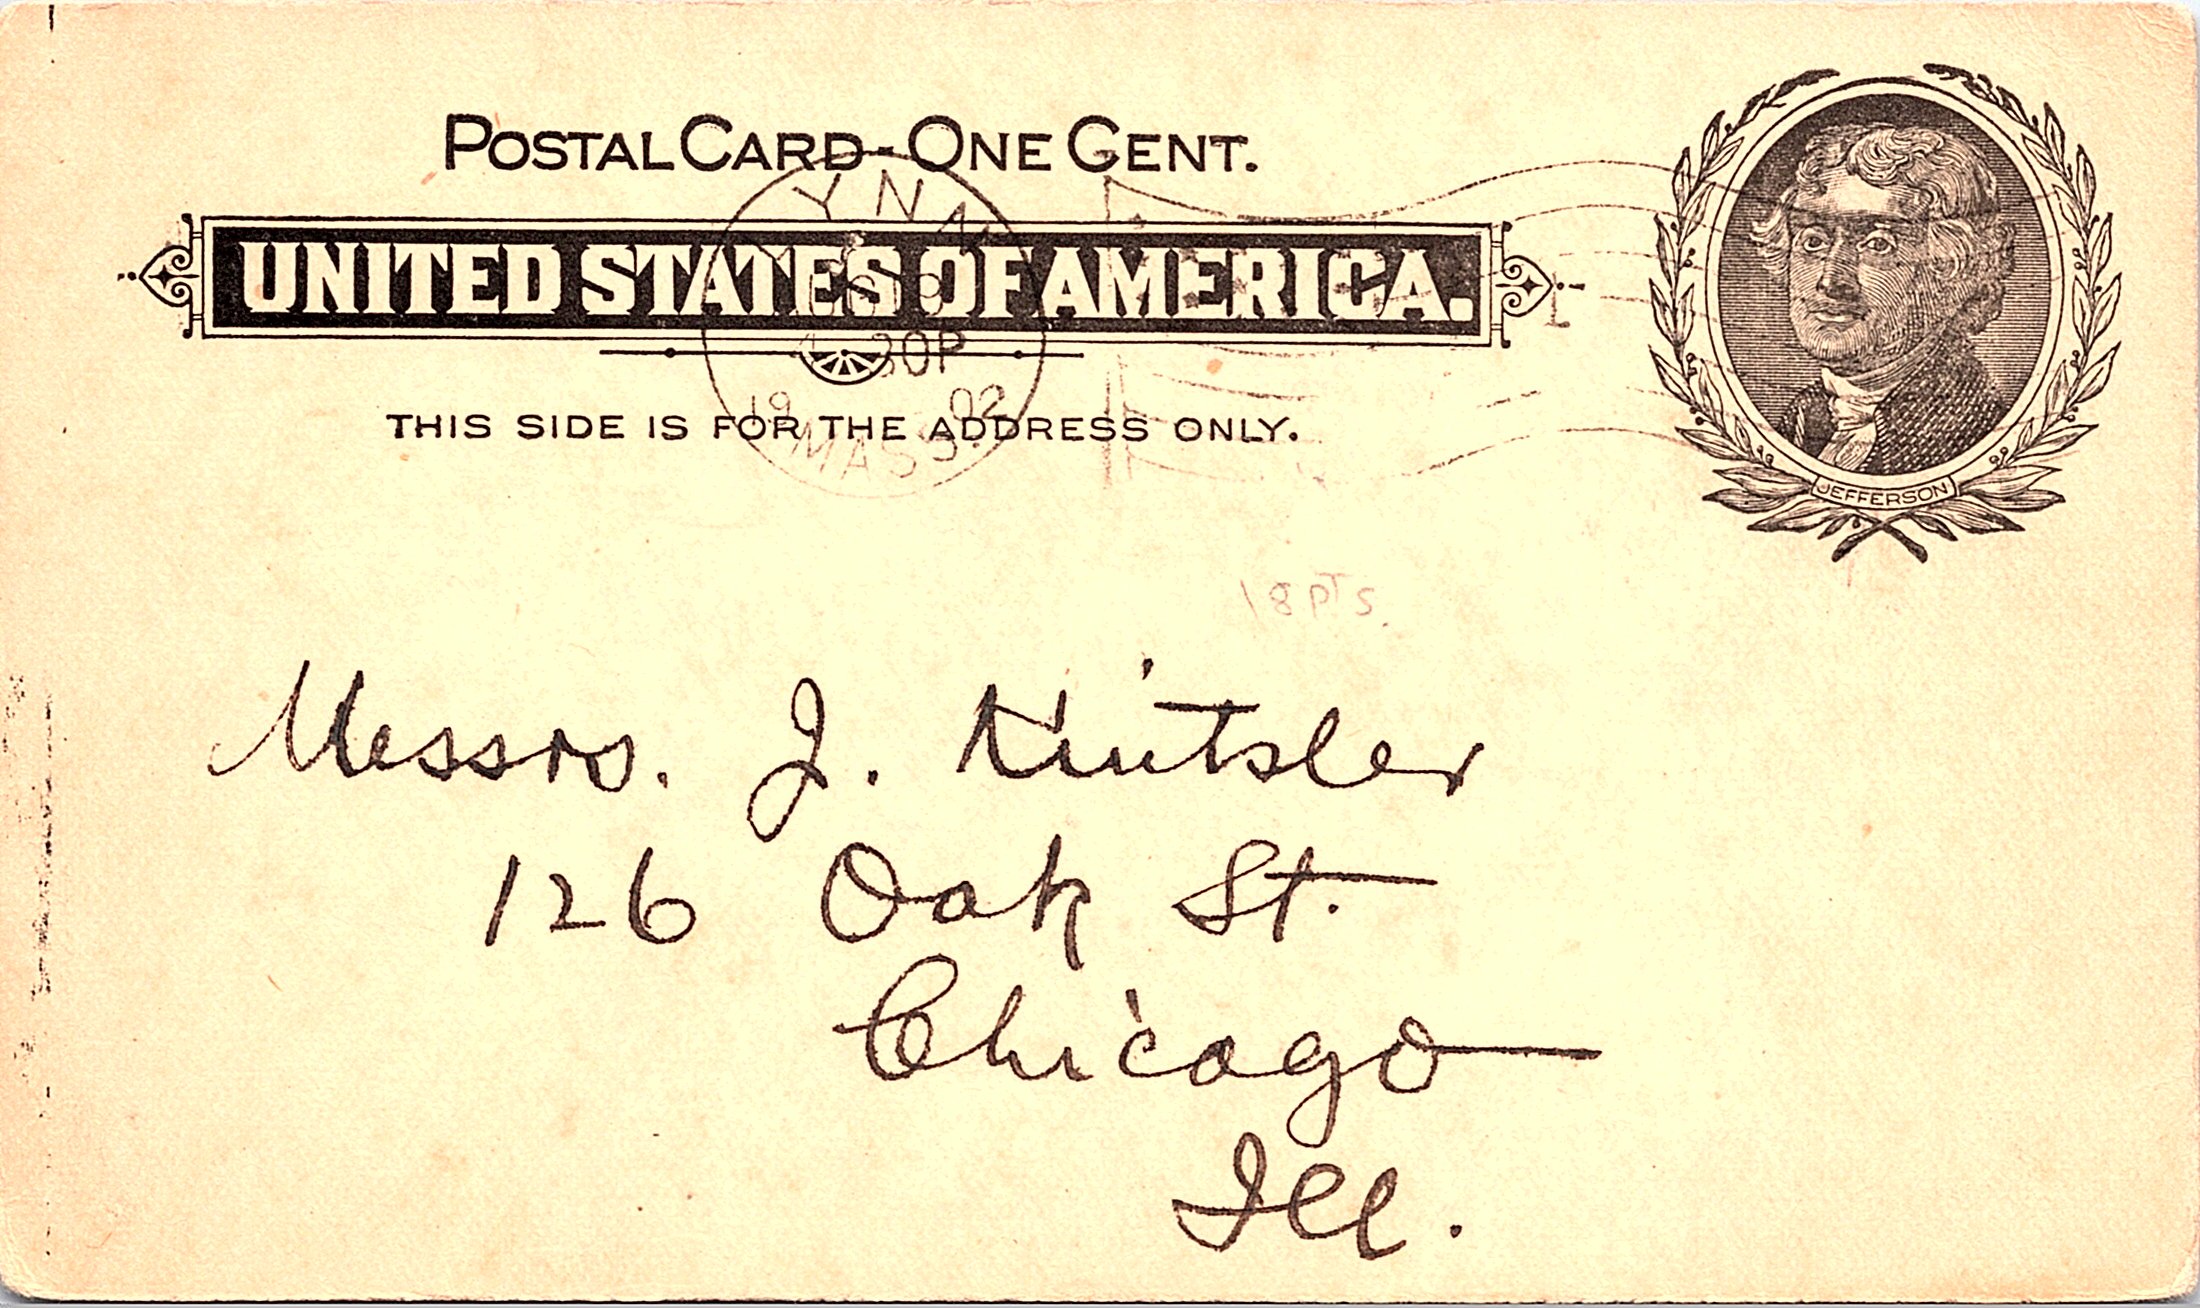 POSTAL CARD - ONE CENT.
UNITED STATES OF AMERICA.
THIS SIDE IS FOR THE ADDRESS ONLY.
YNN
30P
19 02
MASS.
JEFFERSON
18 PTS.
Messrs. J. Kintsler
126 Oak St.
Chicago
Ill.